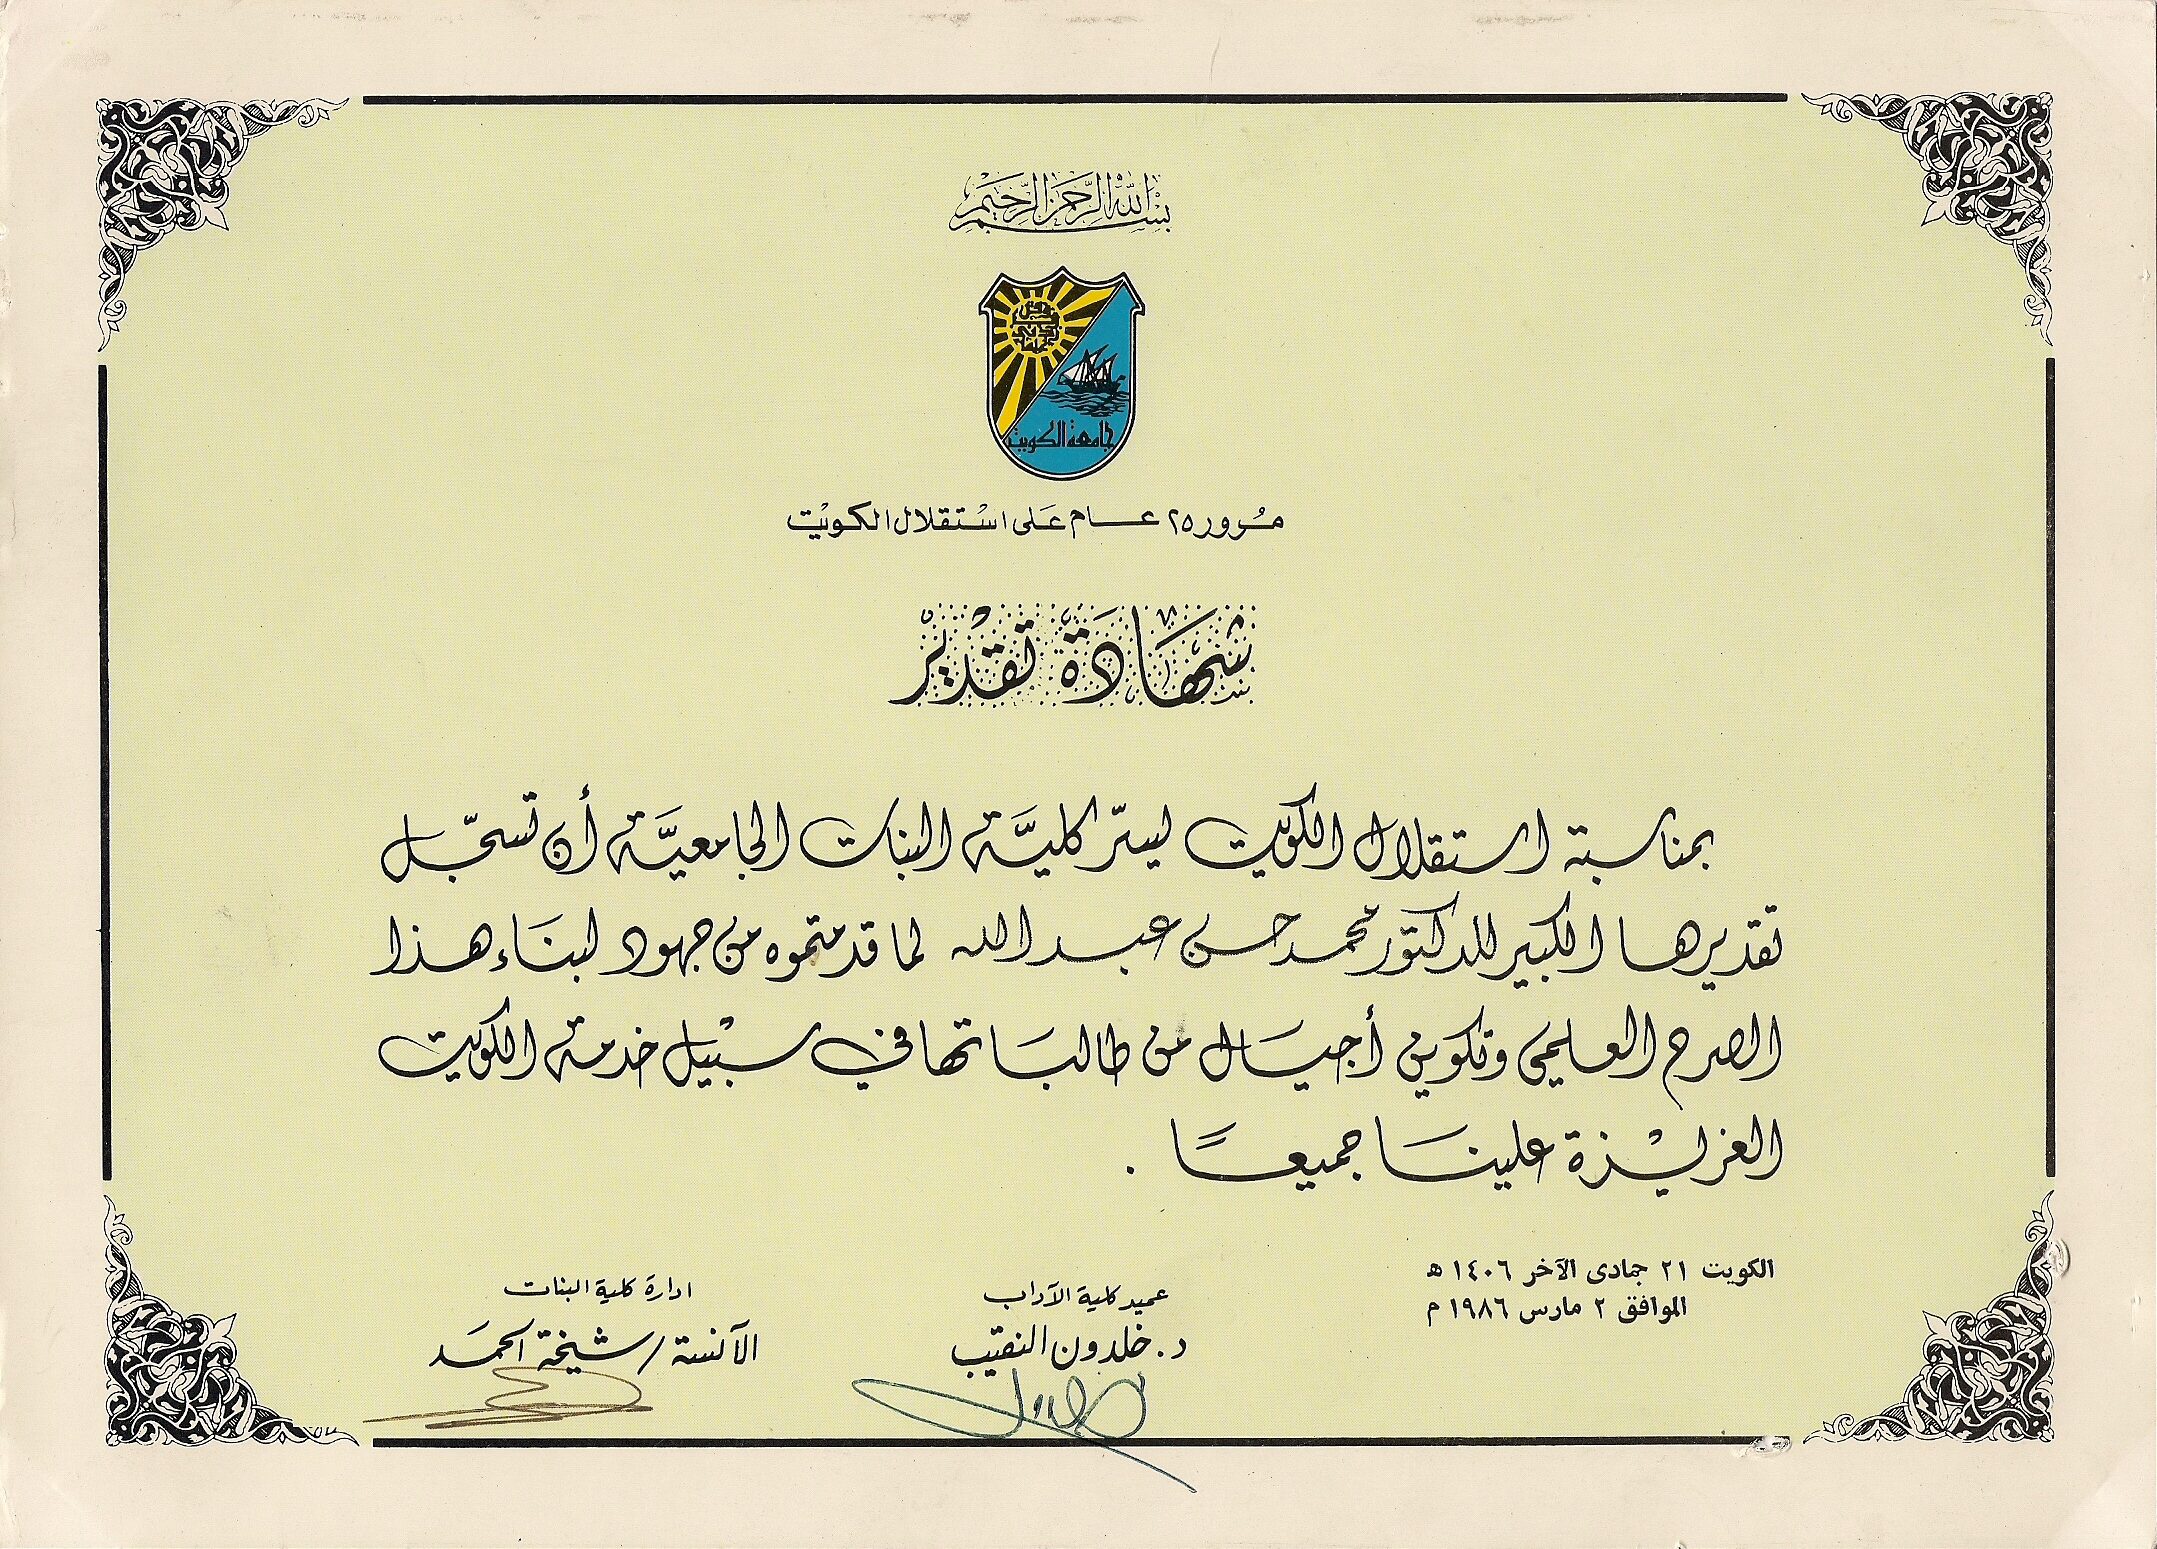 بسم الله الرحمن الرحيم
وقل رب زدني علما
جامعة الكويت
مرور ٢٥ عام على استقلال الكويت
شهادة تقدير
بمناسبة استقلال الكويت ليسرّ كليَّة البنات الجامعيَّة أن تسجّل
تقديرها الكبير للدكتور محمد حسن عبد الله لما قدمتموه من جهود لبناء هذا
الصرح العلمي وتكوين أجيال من طالباتها في سبيل خدمة الكويت
العزيزة علينا جميعًا .
الكويت ٢١ جمادى الآخر ١٤٠٦ هـ
الموافق ٢ مارس ١٩٨٦ م
عميد كلية الآداب
د. خلدون النقيب
ادارة كلية البنات
الآنسة / شيخة الحمد